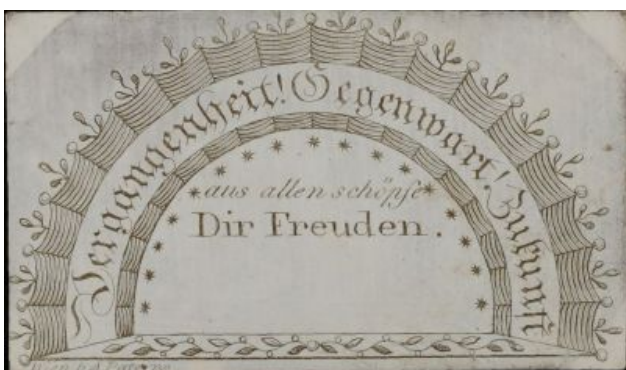 Vergangenheit! Gegenwart! Zukunft
aus allen schöpfe
Dir Freuden.
Wien b. A. Paterno